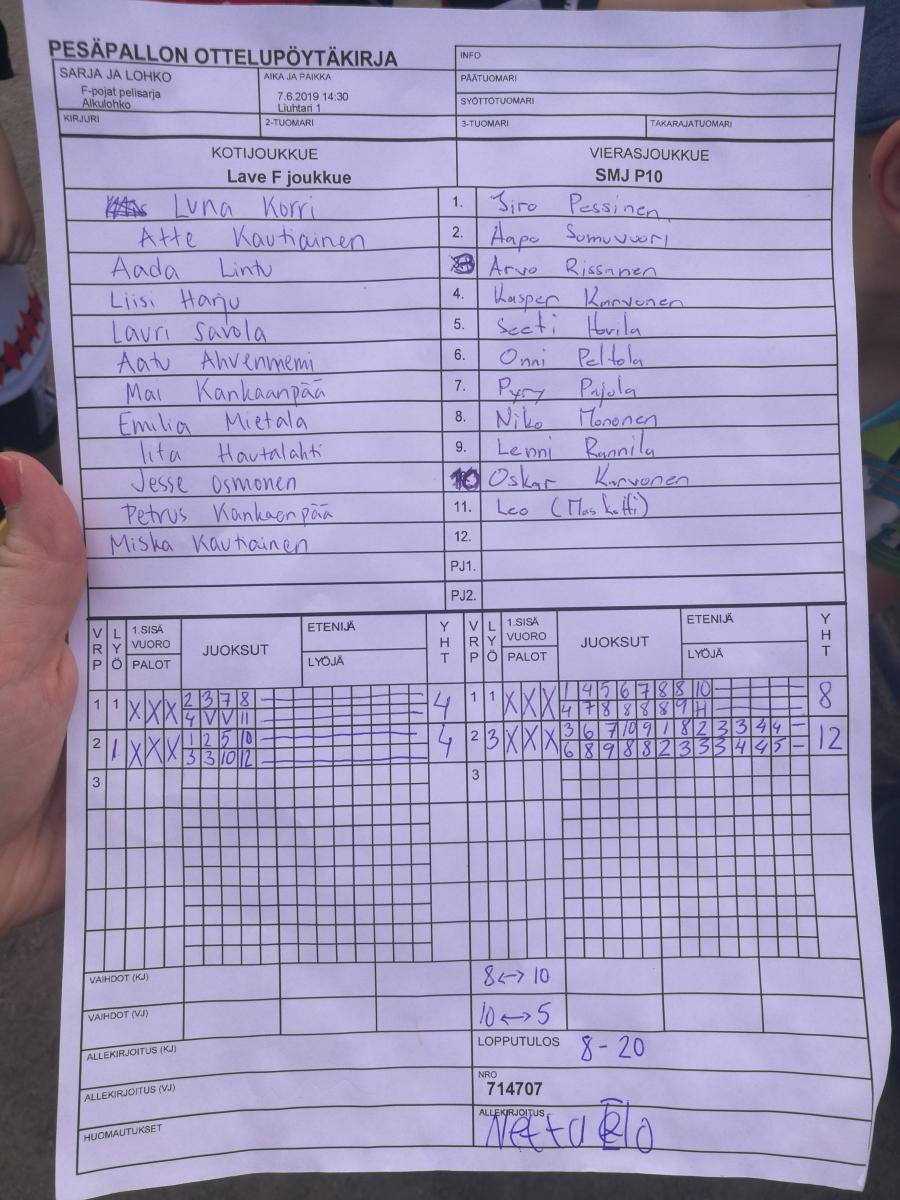 PESÄPALLON OTTELUPÖYTÄKIRJA
INFO
SARJA JA LOHKO
F-pojat pelisarja
Alkulohko
AIKA JA PAIKKA
7.6.2019 14:30
Liuhtari 1
PÄÄTUOMARI
SYÖTTÖTUOMARI
KIRJURI 2-TUOMARI 3-TUOMARI TAKARAJATUOMARI
KOTIJOUKKUE VIERASJOUKKUE
Lave F joukkue SMJ P10
Luna Korri 1. Jiro Pessinen
Atte Kautiainen 2. Aapo Somuvuori
Aada Lintu 3 Arvo Rissanen
Liisi Harju 4. Kasper Karvonen
Lauri Savola 5. Seeti Hovila
Aatu Ahvenniemi 6. Onni Peltola
Mai Kankaanpää 7. Pyry Pajola
Emilia Mietala 8. Niko Mononen
Iita Hautalahti 9. Lenni Rannila
Jesse Osmonen 10 Oskar Karvonen
Petrus Kankaanpää 11. Leo (Maskotti)
Miska Kautiainen 12.
PJ1.
PJ2.
VRP LYÖ 1.SISÄ VUORO PALOT JUOKSUT ETENIJÄ LYÖJÄ YHT VRP LYÖ 1.SISÄ VUORO PALOT JUOKSUT ETENIJÄ LYÖJÄ YHT
1 1 X X X 2 3 7 8 4 1 1 X X X 1 4 5 6 7 8 8 10 8
4 V V 11 4 7 8 8 8 8 9 H
2 1 X X X 1 2 5 10 4 2 3 X X X 3 6 7 10 9 1 8 2 3 3 4 4 12
3 3 10 12 6 8 9 8 8 2 3 3 3 4 4 5
3 3
VAIHDOT (KJ) 8↔10
VAIHDOT (VJ) 10↔5
ALLEKIRJOITUS (KJ) LOPPUTULOS 8-20
ALLEKIRJOITUS (VJ) NRO
714707
HUOMAUTUKSET ALLEKIRJOITUS
Netta Elo